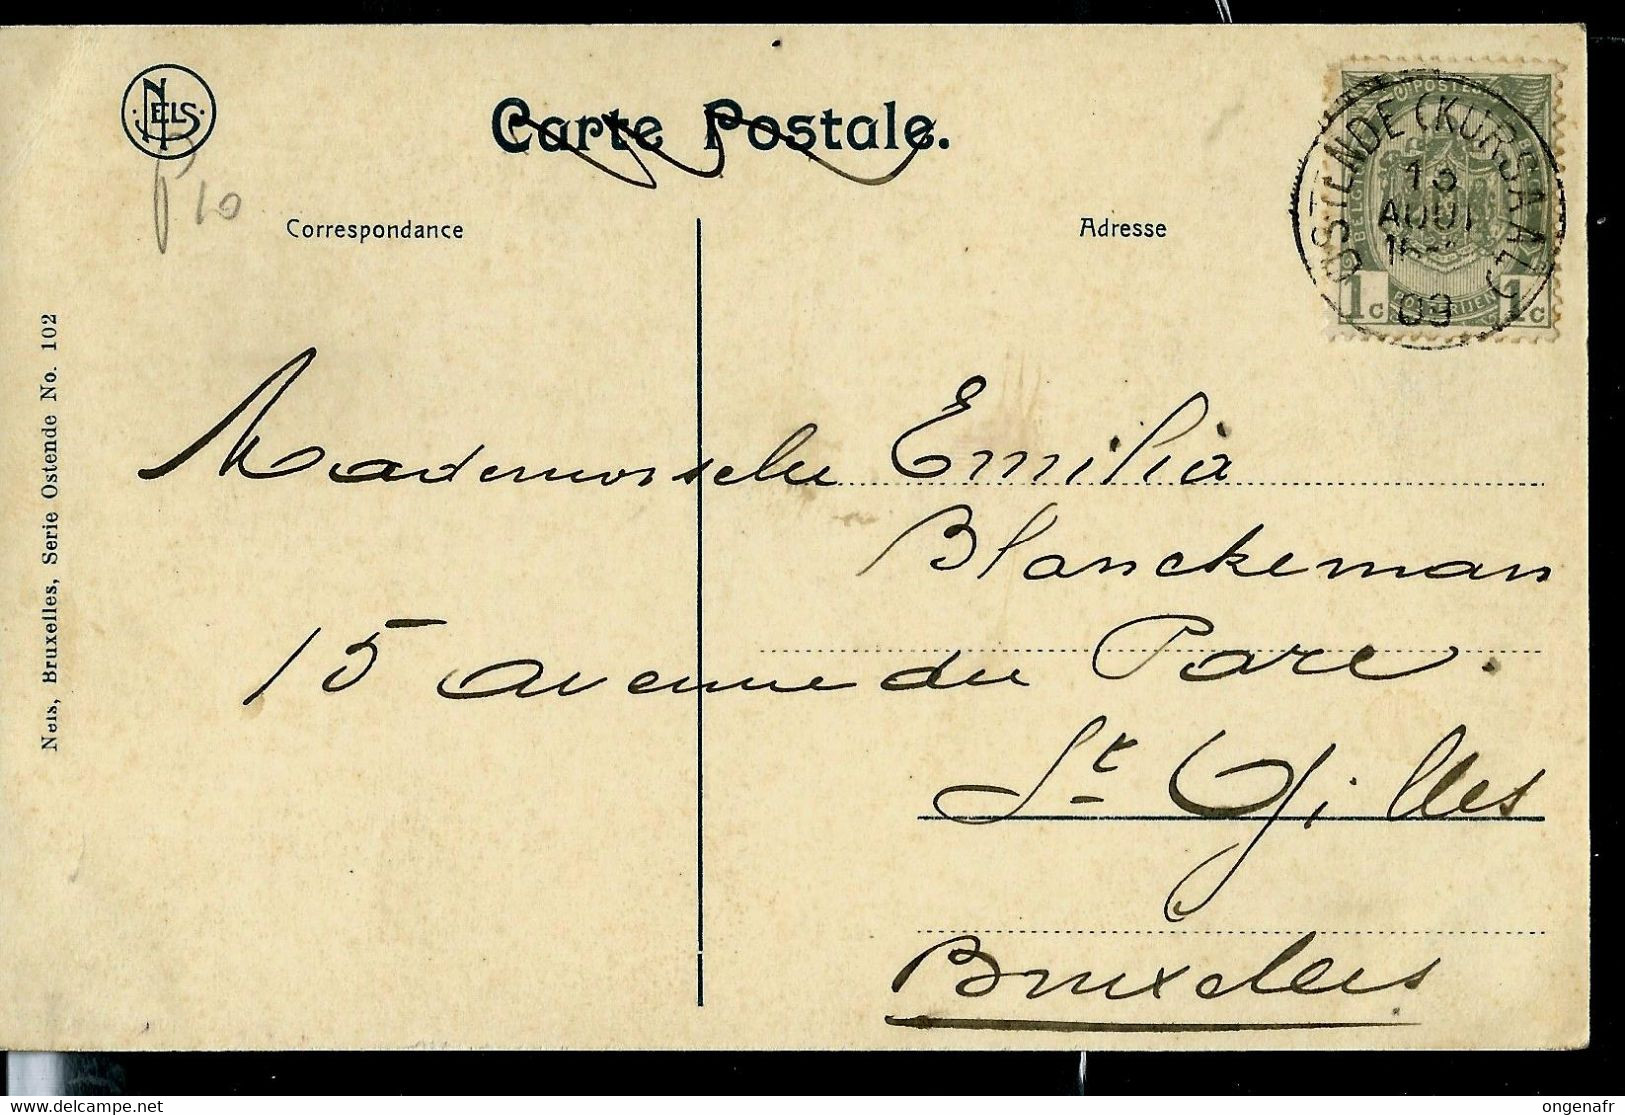 NELS
Carte Postale.
P10
Correspondance
Adresse
OSTENDE (KURSAAL)
AOUT
09
POSTES
1c 1c
Nels, Bruxelles, Serie Ostende No. 102
Mademoiselle Emilia
Blanckeman
15 avenue du Parc.
St Gilles
Bruxelles
delcampe.net
ongenafr